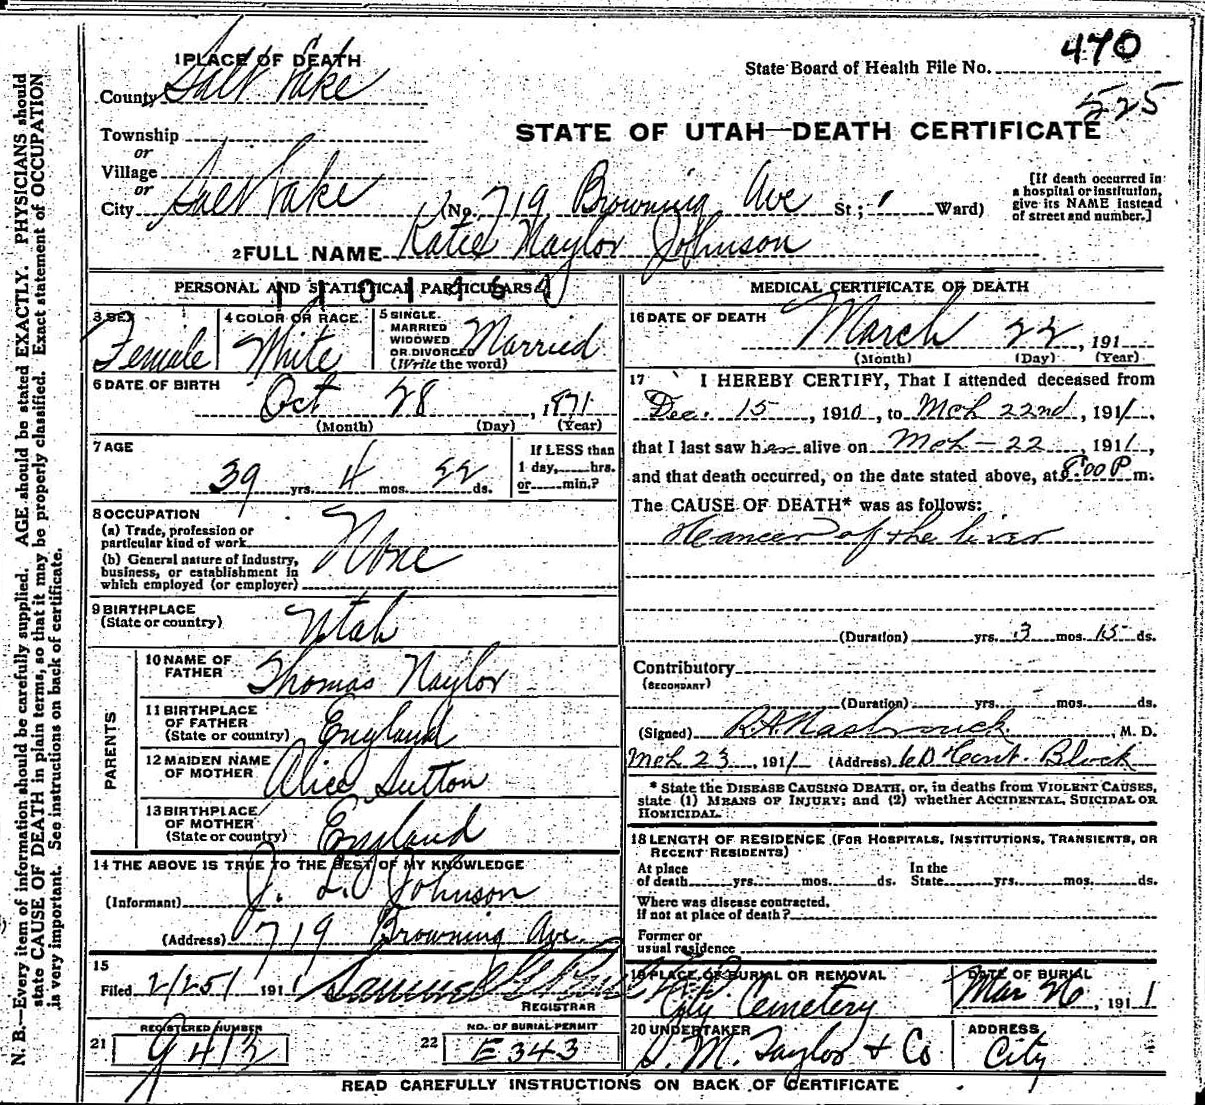 470
State Board of Health File No.
525
1 PLACE OF DEATH
County Salt Lake
STATE OF UTAH—DEATH CERTIFICATE
Township
or
Village
or
City Salt Lake (No. 719 Browning Ave St.; Ward)
[If death occurred in
a hospital or institution,
give its NAME instead
of street and number.]
2 FULL NAME Katie Naylor Johnson
PERSONAL AND STATISTICAL PARTICULARS
3 SEX Female
4 COLOR OR RACE White
5 SINGLE
MARRIED
WIDOWED
OR DIVORCED Married
(Write the word)
6 DATE OF BIRTH
Oct 28, 1871
(Month) (Day) (Year)
7 AGE
39 yrs. 4 mos. 22 ds.
If LESS than
1 day, hrs.
or min.?
8 OCCUPATION
(a) Trade, profession or
particular kind of work
(b) General nature of industry,
business, or establishment in
which employed (or employer)
None
9 BIRTHPLACE
(State or country) Utah
PARENTS
10 NAME OF
FATHER Thomas Naylor
11 BIRTHPLACE
OF FATHER
(State or country) England
12 MAIDEN NAME
OF MOTHER Alice Sutton
13 BIRTHPLACE
OF MOTHER
(State or country) England
14 THE ABOVE IS TRUE TO THE BEST OF MY KNOWLEDGE
(Informant) J. L. Johnson
(Address) 719 Browning Ave.
15
Filed 191
REGISTRAR
REGISTERED NUMBER
21
NO. OF BURIAL PERMIT
22 E343
MEDICAL CERTIFICATE OF DEATH
16 DATE OF DEATH
March 22, 191
(Month) (Day) (Year)
17 I HEREBY CERTIFY, That I attended deceased from
Dec. 15, 1910, to Mch 22nd, 1911,
that I last saw her alive on Mch - 22, 1911,
and that death occurred, on the date stated above, at 8:00 P m.
The CAUSE OF DEATH* was as follows:
Cancer of the liver
(Duration) yrs. 3 mos. 15 ds.
Contributory
(SECONDARY)
(Duration) yrs. mos. ds.
(Signed) R. A. Hasbrouck, M. D.
Mch 23, 1911 (Address) Block
* State the DISEASE CAUSING DEATH, or, in deaths from VIOLENT CAUSES,
state (1) MEANS OF INJURY; and (2) whether ACCIDENTAL, SUICIDAL OR
HOMICIDAL.
18 LENGTH OF RESIDENCE (FOR HOSPITALS, INSTITUTIONS, TRANSIENTS, OR
RECENT RESIDENTS)
At place
of death yrs. mos. ds.
In the
State yrs. mos. ds.
Where was disease contracted,
if not at place of death?
Former or
usual residence
19 PLACE OF BURIAL OR REMOVAL
City Cemetery
DATE OF BURIAL
Mar 26, 1911
20 UNDERTAKER
S. M. Taylor & Co
ADDRESS
City
READ CAREFULLY INSTRUCTIONS ON BACK OF CERTIFICATE
N. B.—Every item of information should be carefully supplied. AGE should be stated EXACTLY. PHYSICIANS should
state CAUSE OF DEATH in plain terms, so that it may be properly classified. Exact statement of OCCUPATION
is very important. See instructions on back of certificate.